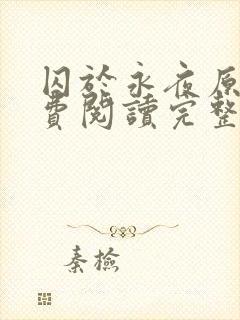 囚於永夜原
費閱讀完整
秦檢